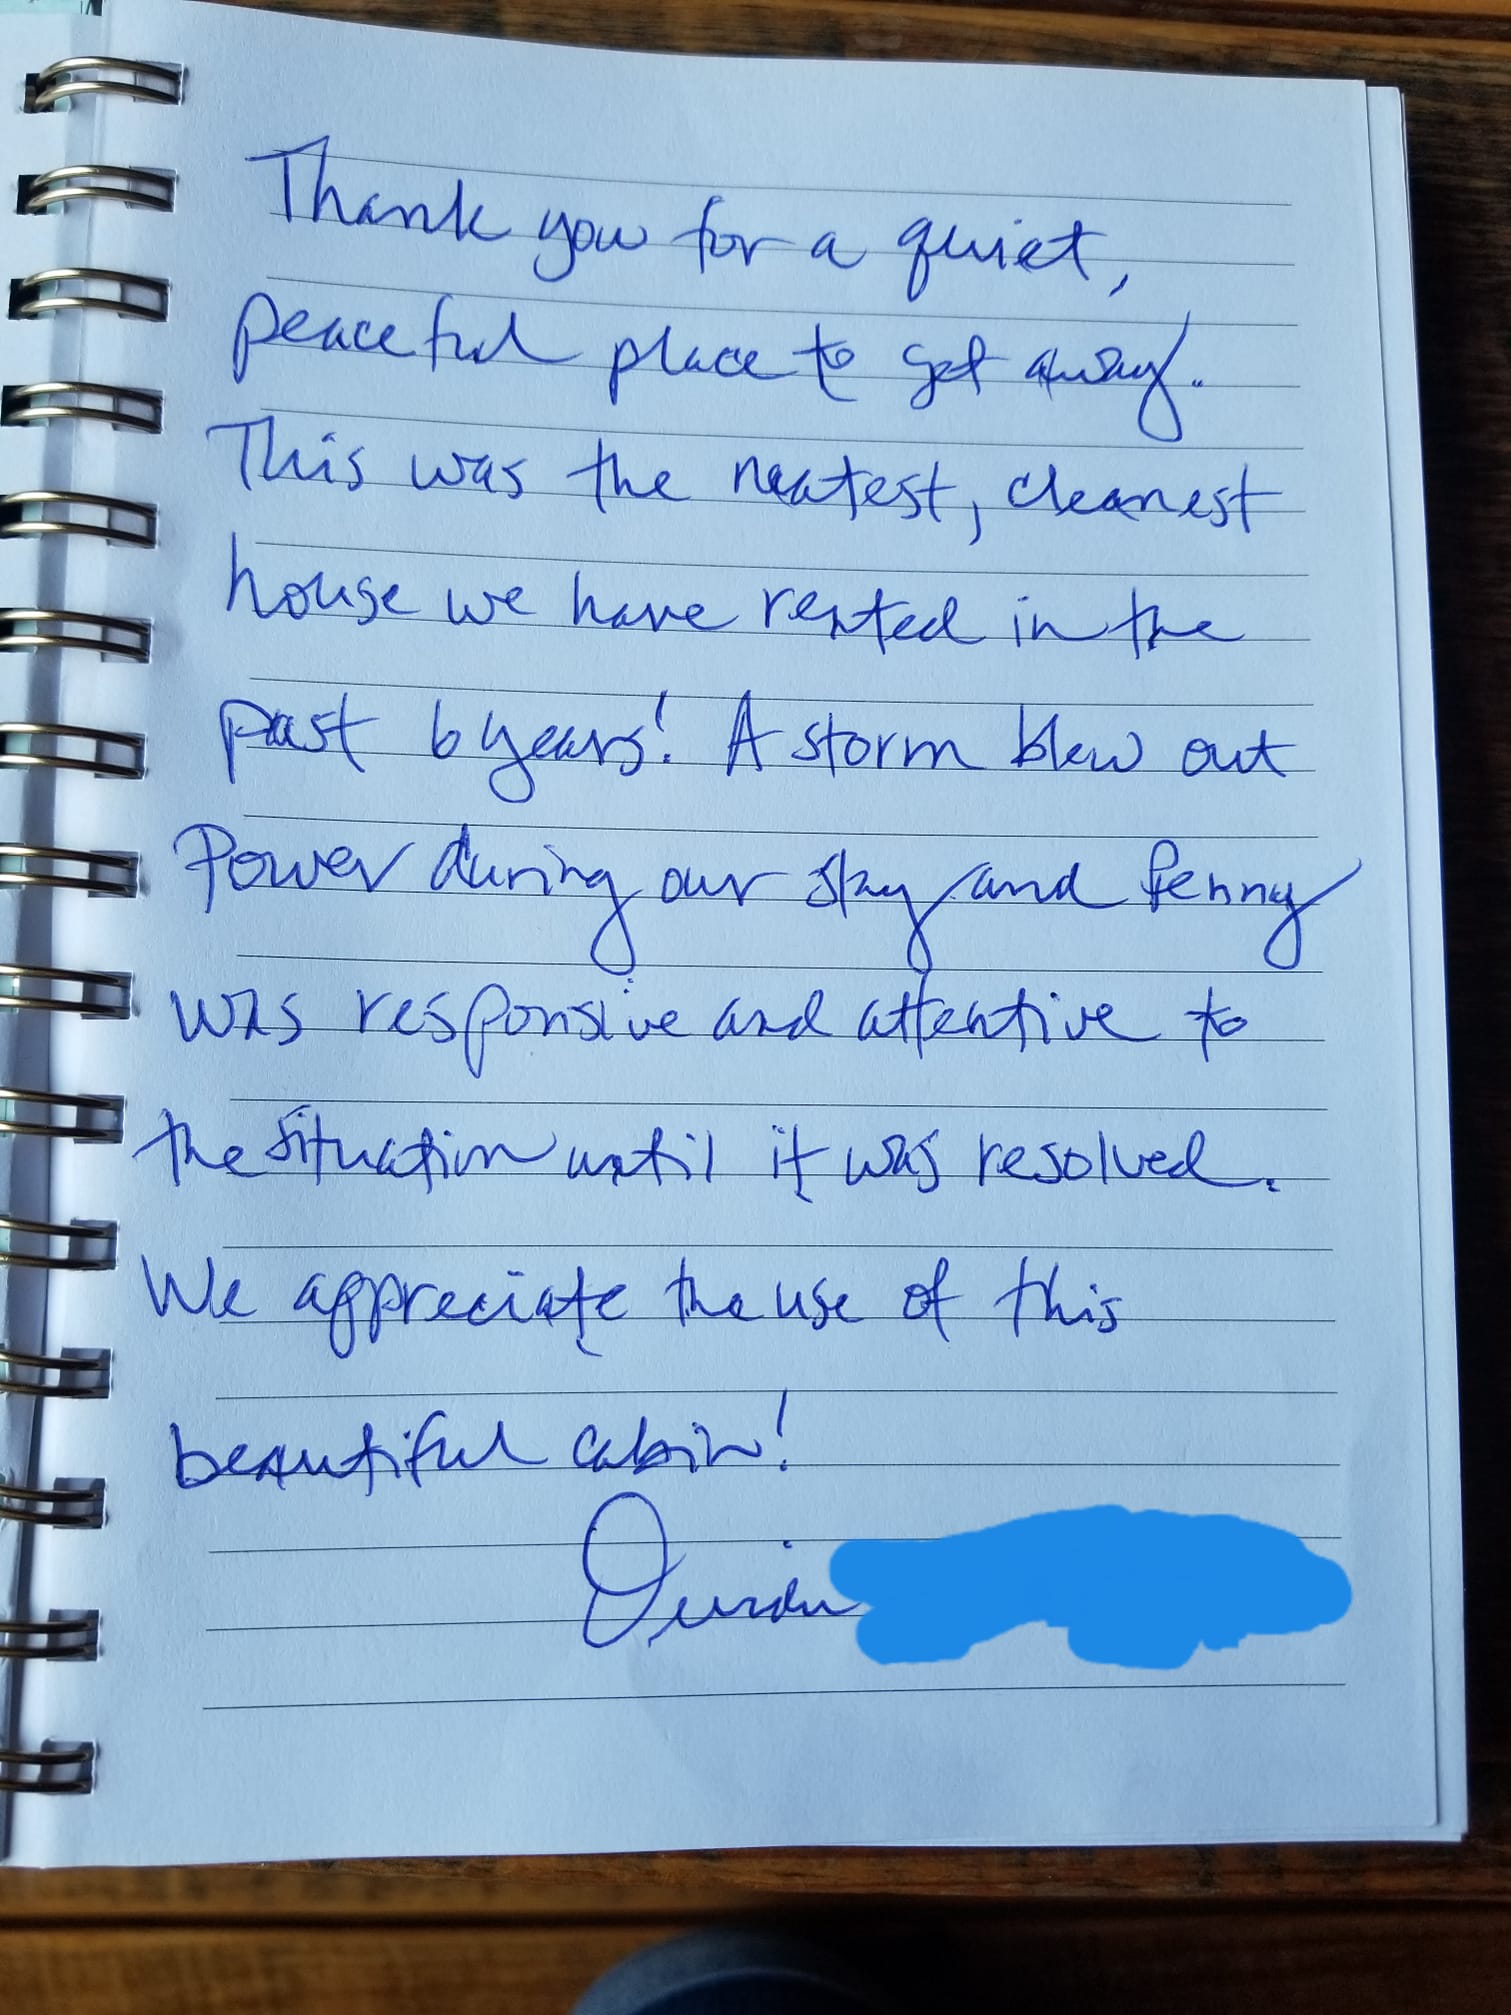 Thank you for a quiet,
peaceful place to get away.
This was the neatest, cleanest
house we have rented in the
past 6 years! A storm blew out
Power during our stay and Penny
was responsive and attentive to
the situation until it was resolved.
We appreciate the use of this
beautiful cabin!